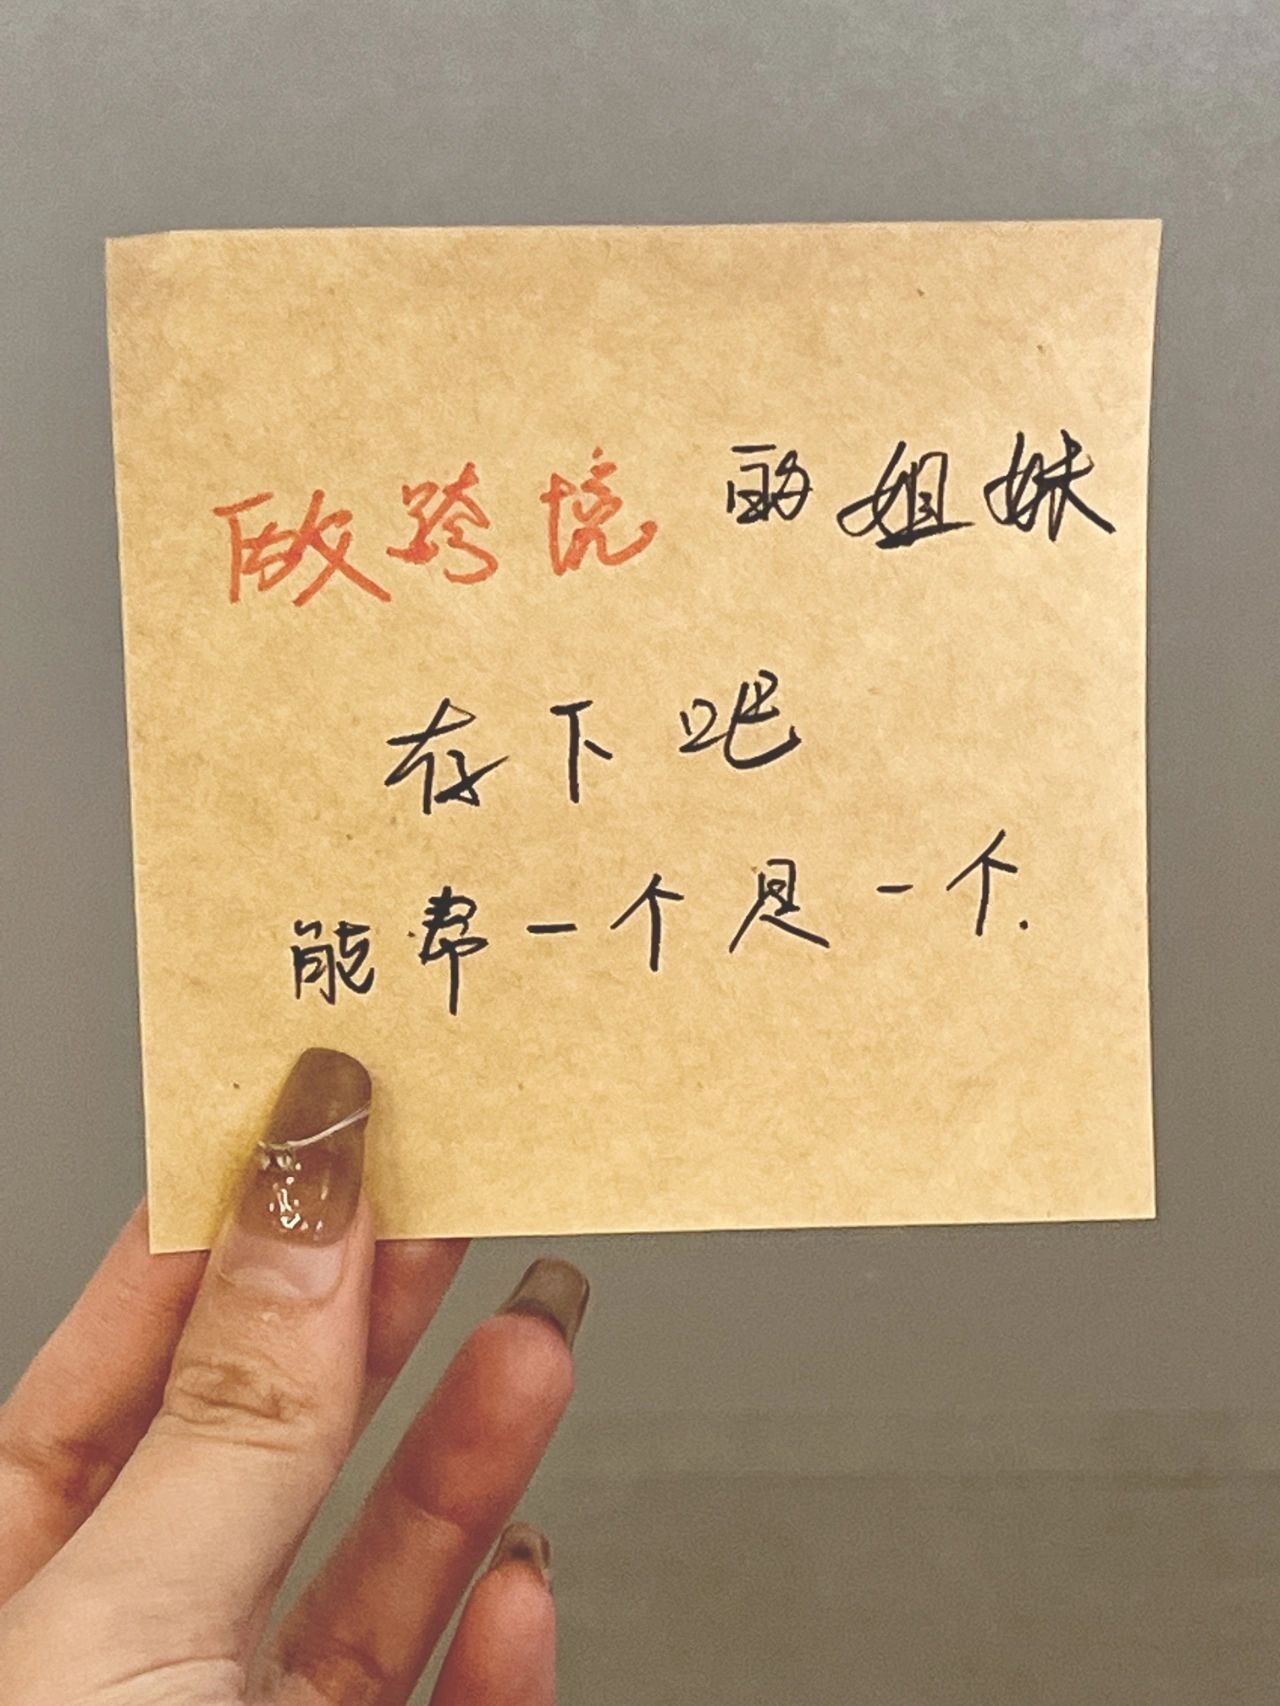 做跨境的姐妹
存下吧
能帮一个是一个.